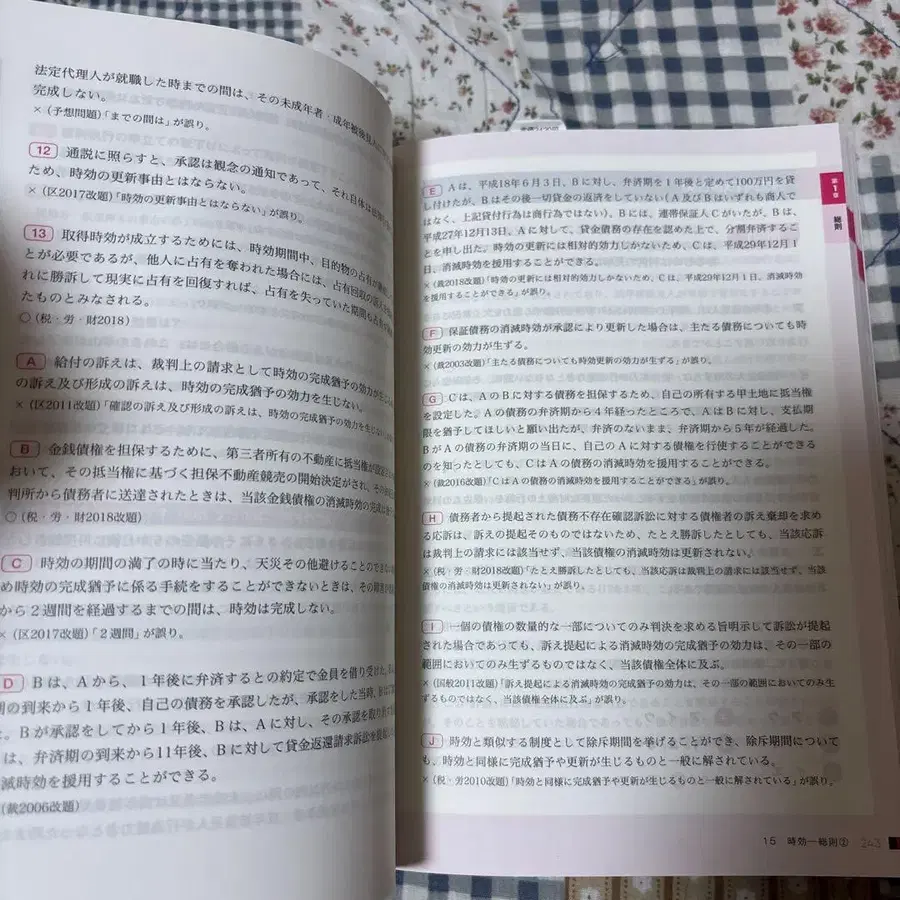 法定代理人が就職した時までの間は、その未成年者・成年被後見人
完成しない。
×(予想問題)「までの間は」が誤り。
12 通説に照らすと、承認は観念の通知であって、それ自体は法律
ため、時効の更新事由とはならない。
×(区2017改題)「時効の更新事由とはならない」が誤り。
13 取得時効が成立するためには、時効期間中、目的物の占有が
とが必要であるが、他人に占有を奪われた場合には、占有回収の訴え
れに勝訴して現実に占有を回復すれば、占有を失っていた期間も占有
たものとみなされる。
○(税・労・財2018)
A 給付の訴えは、裁判上の請求として時効の完成猶予の効力が生じる
の訴え及び形成の訴えは、時効の完成猶予の効力を生じない。
×(区2011改題)「確認の訴え及び形成の訴えは、時効の完成猶予の効力を生じない
B 金銭債権を担保するために、第三者所有の不動産に抵当権が設定
おいて、その抵当権に基づく担保不動産競売の開始決定がされ、その
判所から債務者に送達されたときは、当該金銭債権の消滅時効の完成
○(税・労・財2018改題)
C 時効の期間の満了の時に当たり、天災その他避けることのできない
め時効の完成猶予に係る手続をすることができないときは、その障害
から2週間を経過するまでの間は、時効は完成しない。
×(区2017改題)「2週間」が誤り。
D Bは、Aから、1年後に弁済するとの約定で金員を借り受けた。
期の到来から1年後、自己の債務を承認したが、承認をした当時、Bは
た。Bが承認をしてから1年後、Bは、Aに対し、その承認を取り
は、弁済期の到来から11年後、Bに対して貸金返還請求訴訟を提起
滅時効を援用することができる。
(裁2006改題)
第1章
総則
E Aは、平成18年6月3日、Bに対し、弁済期を1年後と定めて100万円を貸
し付けたが、Bはその後一切貸金の返済をしていない(A及びBはいずれも商人で
はなく、上記貸付行為は商行為ではない)。Bには、連帯保証人Cがいたが、Bは、
平成27年12月13日、Aに対して、貸金債務の存在を認めた上で、分割弁済するこ
とを申し出た。時効の更新には相対的効力しかないため、Cは、平成29年12月1
日、消滅時効を援用することができる。
×(裁2018改題)「時効の更新には相対的効力しかないため、Cは、平成29年12月1日、消滅時効
を援用することができる」が誤り。
F 保証債務の消滅時効が承認により更新した場合は、主たる債務についても時
効更新の効力が生ずる。
×(裁2003改題)「主たる債務についても時効更新の効力が生ずる」が誤り。
G Cは、AのBに対する債務を担保するため、自己の所有する甲土地に抵当権
を設定した。Aの債務の弁済期から4年経ったところで、AはBに対し、支払期
限を猶予してほしいと願い出たが、弁済のないまま、弁済期から5年が経過した。
BがAの債務の弁済期の当日に、自己のAに対する債権を行使することができる
のを知ったとしても、CはAの債務の消滅時効を援用することができる。
×(裁2016改題)「CはAの債務の消滅時効を援用することができる」が誤り。
H 債務者から提起された債務不存在確認訴訟に対する債権者の訴え棄却を求め
る応訴は、訴えの提起そのものではないため、たとえ勝訴したとしても、当該応訴
は裁判上の請求には該当せず、当該債権の消滅時効は更新されない。
×(税・労・財2018改題)「たとえ勝訴したとしても、当該応訴は裁判上の請求には該当せず、当該
債権の消滅時効は更新されない」が誤り。
I 一個の債権の数量的な一部についてのみ判決を求める旨明示して訴訟が提起
された場合であっても、訴え提起による消滅時効の完成猶予の効力は、その一部の
範囲においてのみ生ずるものではなく、当該債権全体に及ぶ。
×(国般2011改題)「訴え提起による消滅時効の完成猶予の効力は、その一部の範囲においてのみ生
ずるものではなく、当該債権全体に及ぶ」が誤り。
J 時効と類似する制度として除斥期間を挙げることができ、除斥期間について
も、時効と同様に完成猶予や更新が生じるものと一般に解されている。
×(税・労2010改題)「時効と同様に完成猶予や更新が生じるものと一般に解されている」が誤り。
15 時効―総則② 243